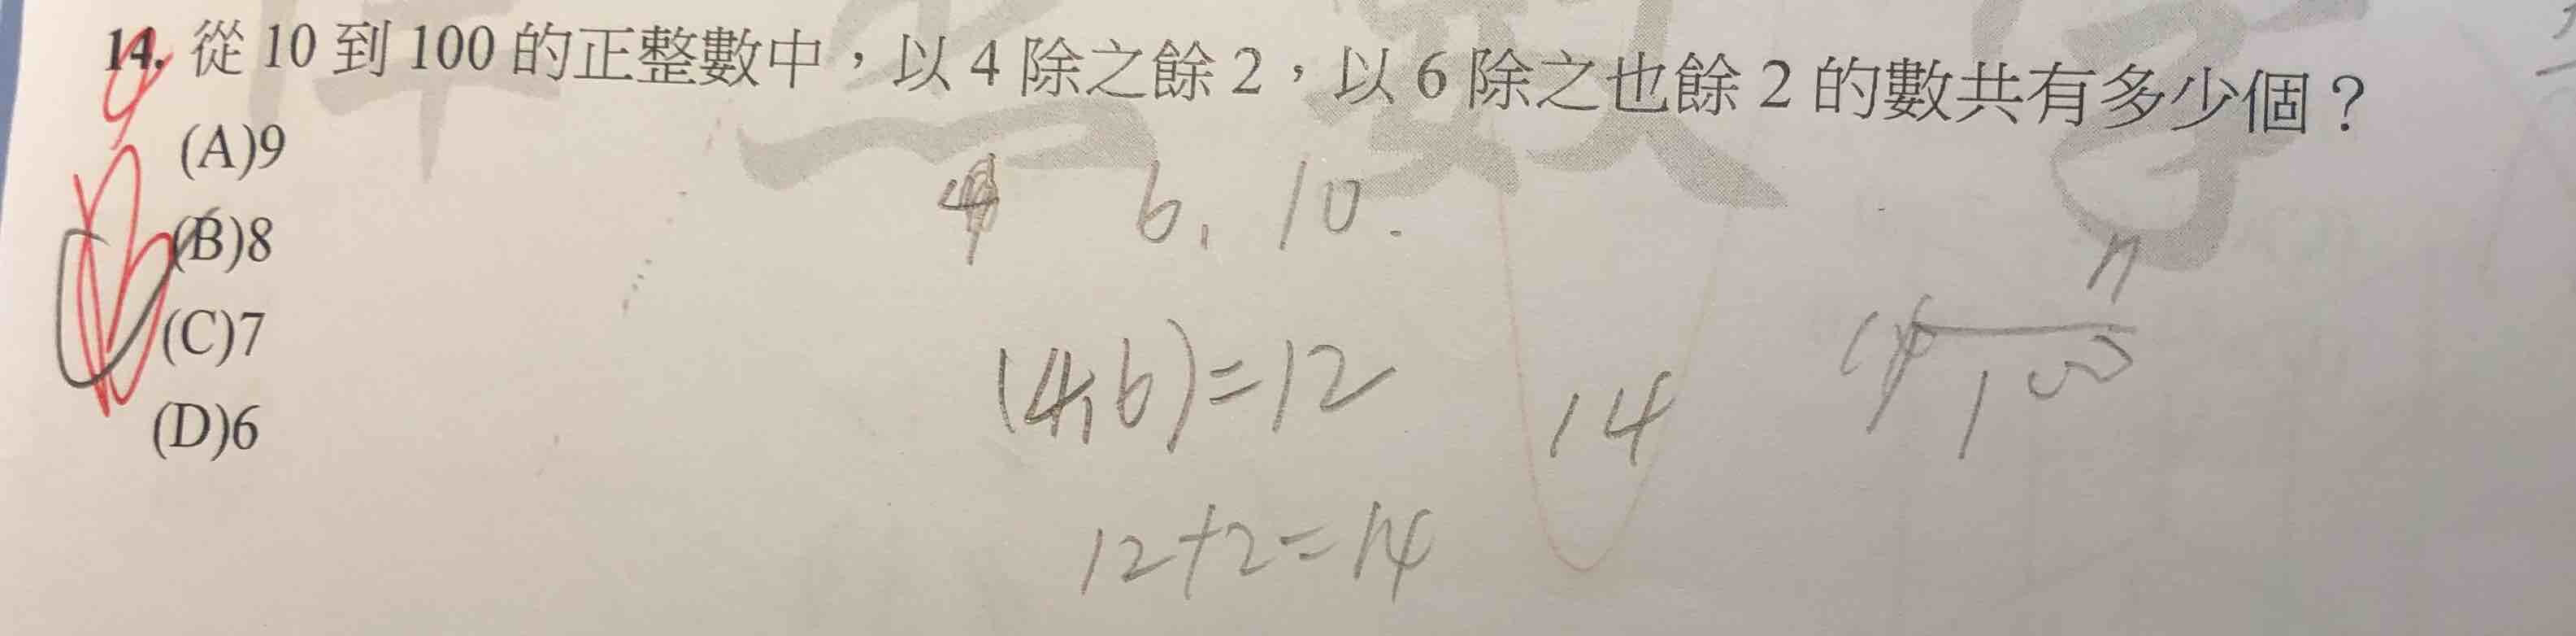 14. 從 10 到 100 的正整數中，以 4 除之餘 2，以 6 除之也餘 2 的數共有多少個？
(A)9
(B)8
(C)7
(D)6
6, 10.
[4,6)=12
14
100
12+2=14